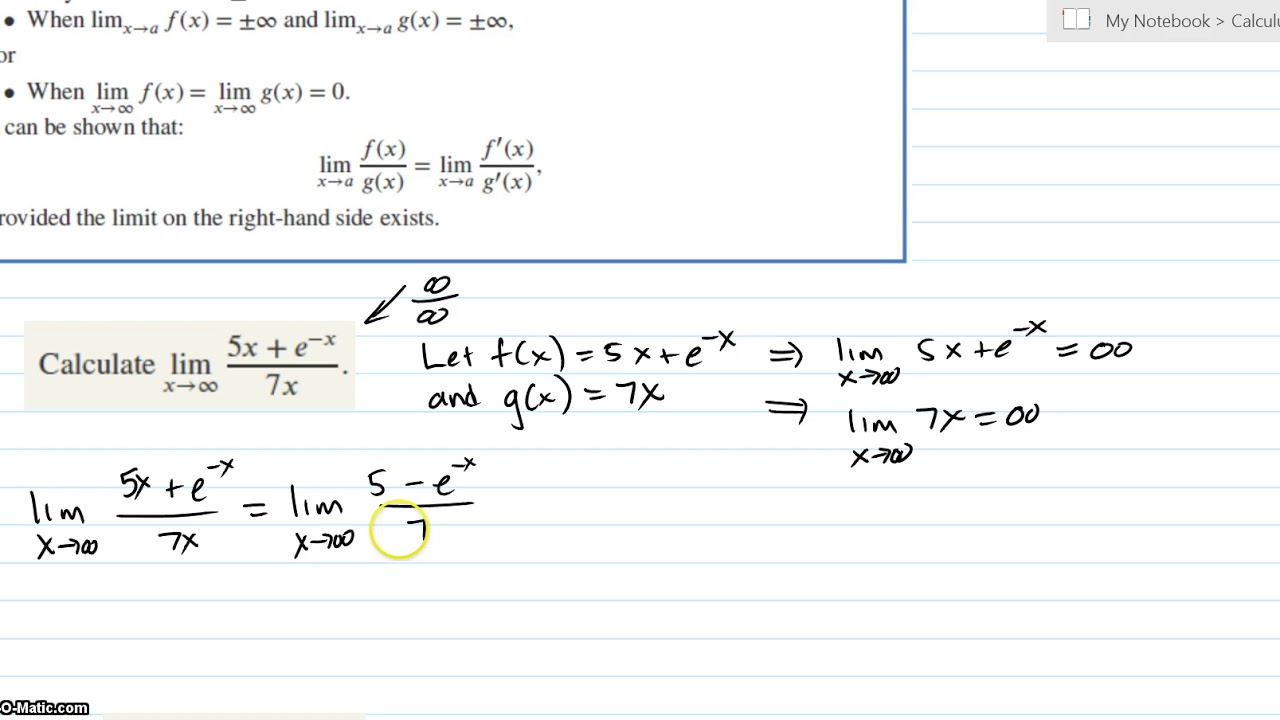 • When lim x→a f(x) = ±∞ and lim x→a g(x) = ±∞,
My Notebook > Calcul
or
• When lim x→∞ f(x) = lim x→∞ g(x) = 0.
can be shown that:
lim x→a f(x)/g(x) = lim x→a f'(x)/g'(x),
rovided the limit on the right-hand side exists.
∞/∞
Calculate lim x→∞ (5x + e^−x)/(7x).
Let f(x) = 5x + e^−x ⇒ lim x→∞ 5x + e^−x = ∞
and g(x) = 7x ⇒ lim x→∞ 7x = ∞
lim x→∞ (5x + e^−x)/(7x) = lim x→∞ (5 − e^−x)/7
O-Matic.com